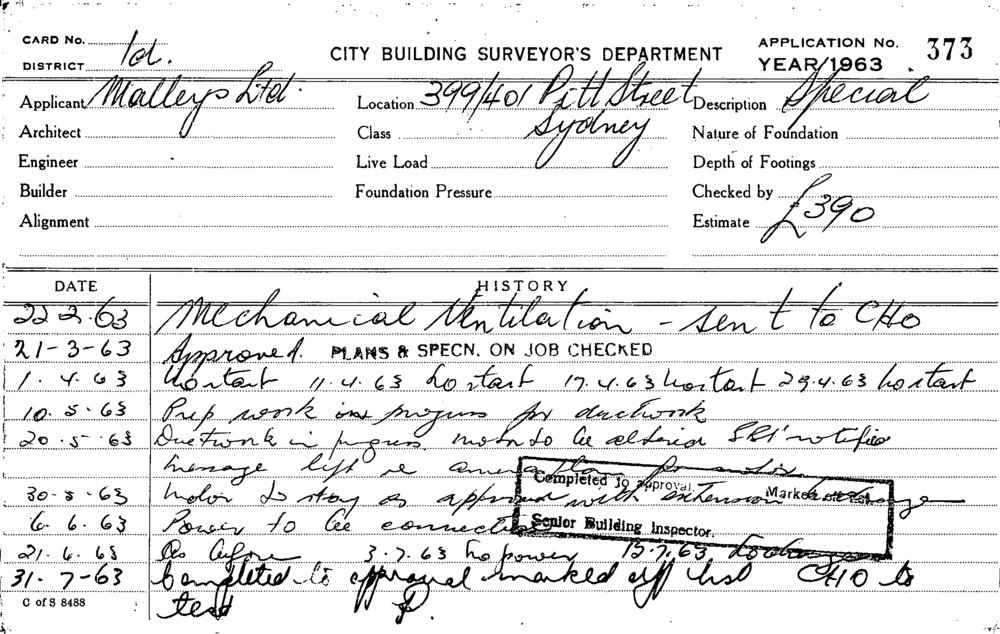 CARD No. 1d.
CITY BUILDING SURVEYOR'S DEPARTMENT
APPLICATION No. 373
DISTRICT
YEAR/1963
Applicant Malleys Ltd.
Location 399/401 Pitt Street
Sydney
Description Special
Architect
Class
Nature of Foundation
Engineer
Live Load
Depth of Footings
Builder
Foundation Pressure
Checked by
Alignment
Estimate £390
DATE HISTORY
22-2-63 Mechanical Ventilation - sent to CHO
21-3-63 Approved. PLANS & SPECN. ON JOB CHECKED
1.4.63 No start 11.4.63 No start 17.4.63 No start 29.4.63 No start
10.5.63 Prep work in progress for ductwork
20.5.63 Ductwork in progress motor to be altered notified
message left re amended plans for motor
Completed to approval. Marked off list.
30-5-63 Motor to stay as approved with extension
Senior Building Inspector.
6.6.63 Power to be connected
21.6.63 As before 3.7.63 No power 15.7.63 No change
31-7-63 Completed to approval marked off list CHO to
test
C of S 8488